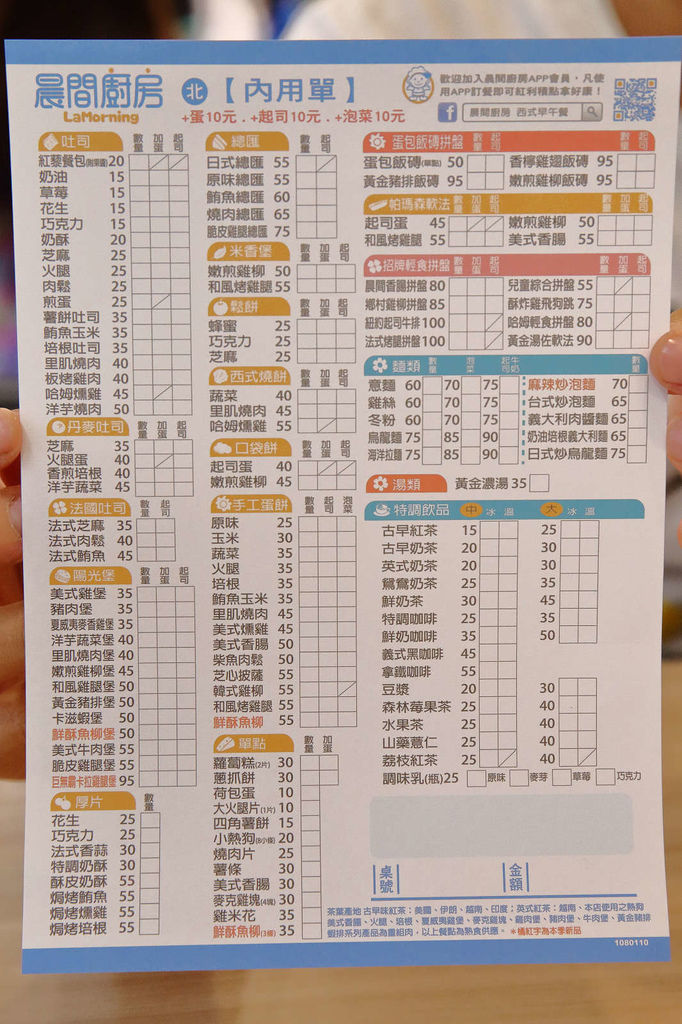 晨間廚房
LaMorning
北【內用單】
+蛋10元.+起司10元.+泡菜10元
歡迎加入晨間廚房APP會員,凡使
用APP訂餐即可紅利積點拿好康!
晨間廚房 西式早午餐
吐司 數量 加蛋 起司
紅藜餐包(附果醬)20
奶油 15
草莓 15
花生 15
巧克力 15
奶酥 20
芝麻 25
火腿 25
肉鬆 25
煎蛋 25
薯餅吐司 35
鮪魚玉米 35
培根吐司 35
里肌燒肉 40
板烤雞肉 40
哈姆燻雞 45
洋芋燒肉 50
丹麥吐司 數量 加蛋 起司
芝麻 35
火腿蛋 40
香煎培根 40
洋芋蔬菜 45
法國吐司 數量 起司
法式芝麻 35
法式肉鬆 40
法式鮪魚 45
陽光堡 數量 加蛋 起司
美式雞堡 35
豬肉堡 35
夏威夷麥香雞堡 35
洋芋蔬菜堡 40
里肌燒肉堡 40
嫩煎雞柳堡 45
和風雞腿堡 50
黃金豬排堡 50
卡滋蝦堡 50
鮮酥魚柳堡 50
美式牛肉堡 55
脆皮雞腿堡 55
巨無霸卡拉雞腿堡 95
厚片 數量
花生 25
巧克力 25
法式香蒜 30
特調奶酥 30
酥皮奶酥 55
焗烤鮪魚 55
焗烤燻雞 55
焗烤培根 55
總匯 數量 加蛋 起司
日式總匯 55
原味總匯 55
鮪魚總匯 60
燒肉總匯 65
脆皮雞腿總匯 75
米香堡 數量 加蛋 起司
嫩煎雞柳 50
和風雞腿 55
鬆餅 數量 加蛋 起司
蜂蜜 25
巧克力 25
芝麻 25
西式燒餅 數量 加蛋 起司
蔬菜 40
里肌燒肉 45
哈姆燻雞 55
口袋餅 數量 加蛋 起司
起司蛋 40
嫩煎雞柳 45
手工蛋餅 數量 加蛋 起司 泡菜
原味 25
玉米 30
蔬菜 35
火腿 35
培根 35
鮪魚玉米 35
里肌燒肉 45
美式燻雞 45
美式香腸 50
柴魚肉鬆 50
芝心披薩 55
韓式雞柳 55
和風燒雞 55
鮮酥魚柳 55
單點 數量 加蛋
蘿蔔糕(2片) 30
蔥抓餅 30
荷包蛋 10
大火腿片(1片) 10
四角薯餅 15
小熱狗(8小條) 20
燒肉片 25
薯條 30
美式香腸 30
麥克雞塊(4塊) 30
雞米花 35
鮮酥魚柳(3條) 35
蛋包飯磚拼盤 數量 起司
蛋包飯磚(單點) 50 香檸雞翅飯磚 95
黃金豬排飯磚 95 嫩煎雞柳飯磚 95
帕瑪森軟法 數量 加蛋 起司 數量 加蛋 起司
起司蛋 45 嫩煎雞柳 50
和風烤雞 55 美式香腸 55
招牌輕食拼盤 數量 加蛋 起司 數量 加蛋 起司
晨間香腸拼盤 80 兒童綜合拼盤 55
鄉村雞柳拼盤 85 酥炸雞飛狗跳 75
紐約起司牛排 100 哈姆輕食拼盤 80
法式烤腿拼盤 100 黃金湯佐軟法 90
麵類 數量 泡菜 起司牛奶 數量
意麵 60 70 75 麻辣炒泡麵 70
雞絲 60 70 75 台式炒泡麵 65
冬粉 60 70 75 義大利肉醬麵 65
烏龍麵 75 85 90 奶油培根義大利麵 65
海洋拉麵 75 85 90 日式炒烏龍麵 75
湯類 黃金濃湯 35
特調飲品 中 冰 溫 大 冰 溫
古早紅茶 15 25
古早奶茶 20 30
英式奶茶 20 30
鴛鴦奶茶 25 35
鮮奶茶 30 45
特調咖啡 25 35
鮮奶咖啡 35 50
義式黑咖啡 45
拿鐵咖啡 55
豆漿 20 30
森林莓果茶 25 40
水果茶 25 40
山藥薏仁 25 40
荔枝紅茶 25 40
調味乳(瓶)25 原味 麥芽 草莓 巧克力
桌號 金額
茶葉產地 古早味紅茶:美國、伊朗、越南、印度;英式紅茶:越南、本店使用之熱狗
美式香腸、火腿、培根、夏威夷雞堡、麥克雞塊、雞肉堡、豬肉堡、牛肉堡、黃金豬排
蝦排系列產品為重組肉,以上餐點為熟食供應。*橘紅字為本季新品
1080110